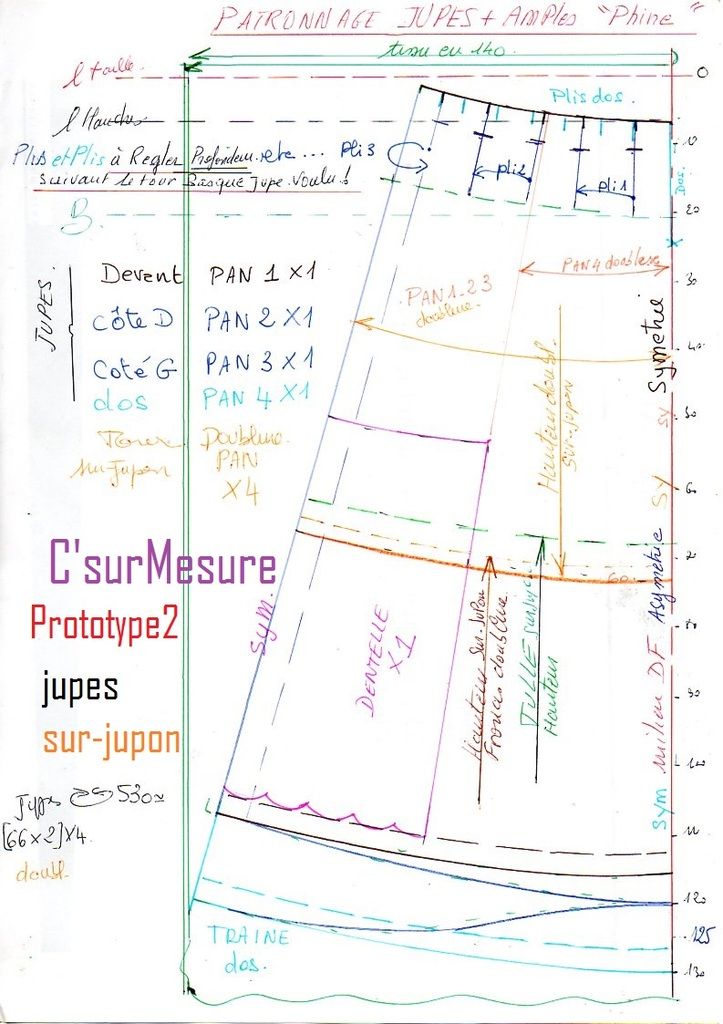 PATRONNAGE JUPES + AMPles "Phine"
tissu en 140.
l taille
0
l Hanches
Plis dos.
Plus et Plis à Regler Profondeur. etc ... Pli 3
Suivant le tour Basque Jupe Voulu !
Pli 2
Pli 1
Dos
10
20
B.
30
40
50
60
70
80
90
100
110
120
125
130
JUPES.
Devant PAN 1 X1
Côte D PAN 2 X1
Coté G PAN 3 X1
dos PAN 4 X1
sur-jupon
Doublure
PAN
X4
PAN 4 doublure
PAN 1_2 3
doublure
Symétrie
Hauteur doubl
Sur-jupon
Sy
sy
60
Asymétrie
C'surMesure
Prototype2
jupes
sur-jupon
Sym.
DENTELLE
X1
Hauteur Sur-Jupon
Froncis doublure
TULLE sur-jupon
Hauteur
Sym milieu DF
Jupes 530
[66 x 2] X4
doubl.
TRAINE
dos.